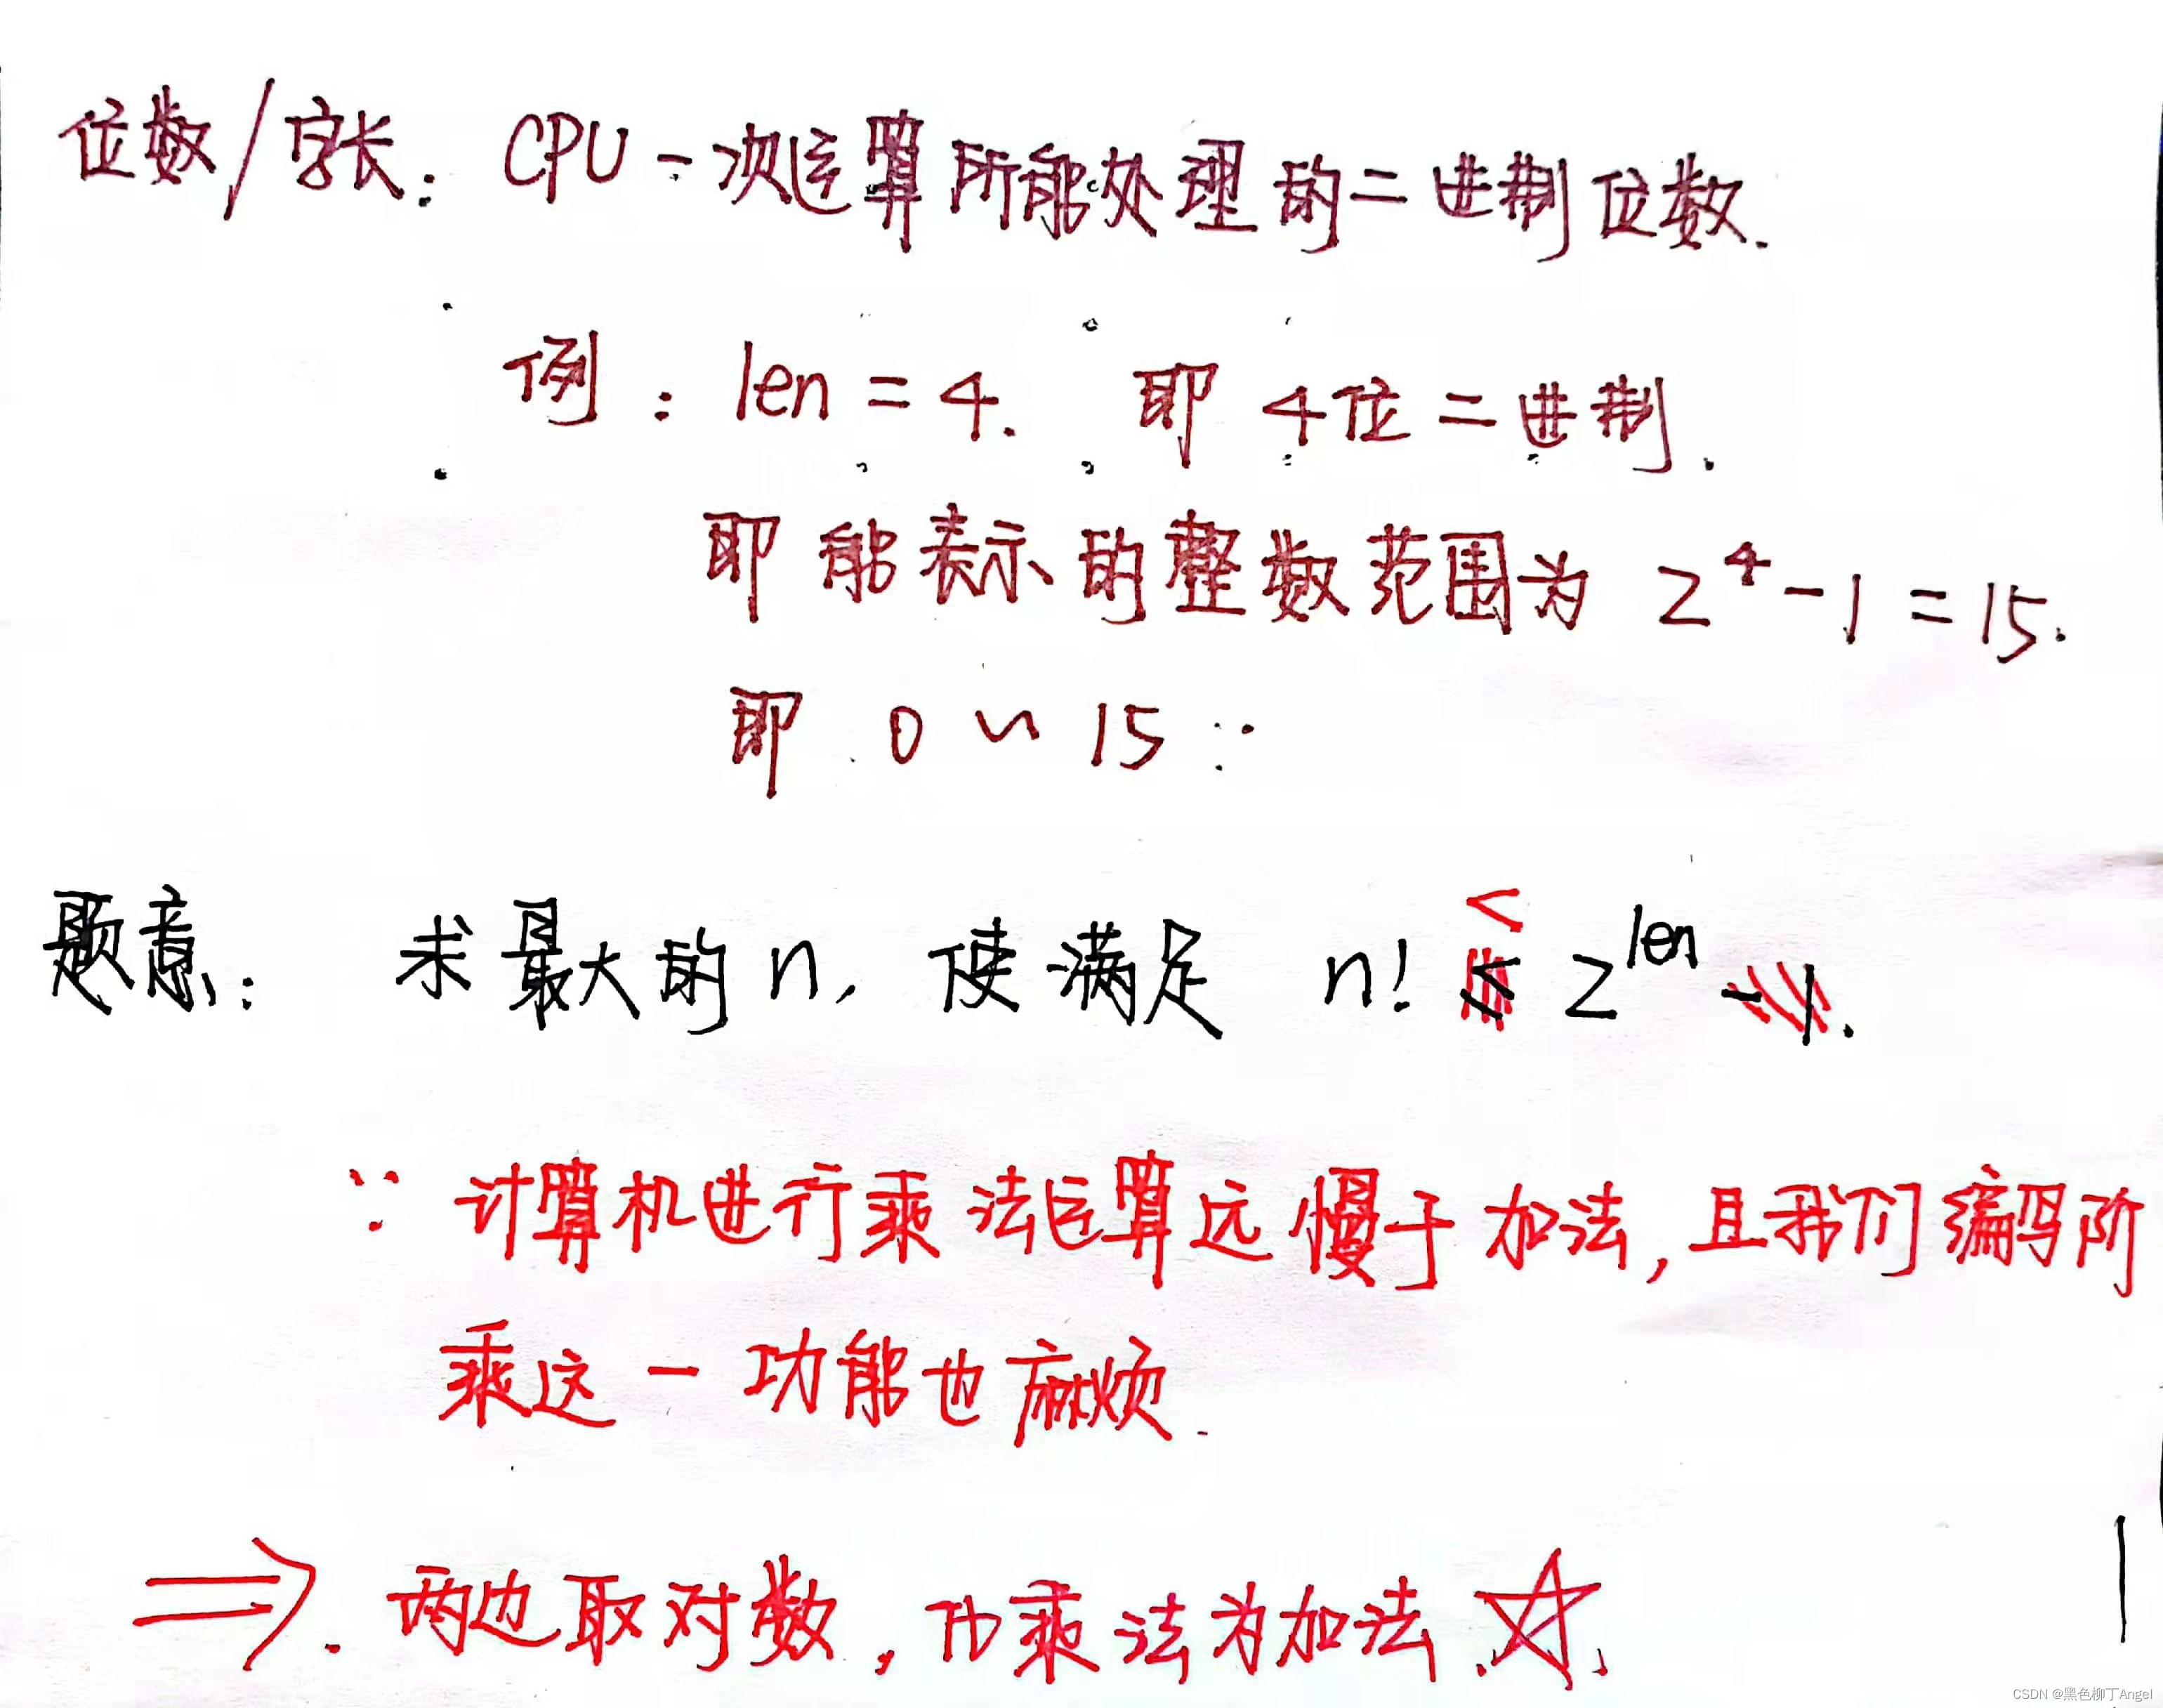 位数/字长: CPU一次运算所能处理的二进制位数.
例: len = 4. 即 4位二进制.
即能表示的整数范围为 2^4 - 1 = 15.
即 0 ~ 15
题意: 求最大的n, 使满足 n! < 2^len
∵ 计算机进行乘法运算远慢于加法, 且我们编写阶
乘这一功能也麻烦.
⇒. 两边取对数, 化乘法为加法 ☆.
CSDN @黑色柳丁Angel